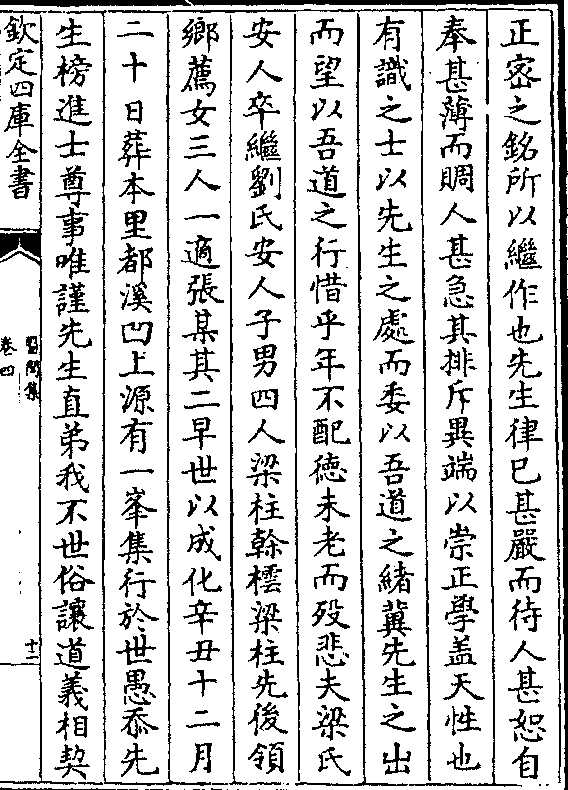 正宻之銘所以繼作也先生律已甚嚴而待人甚恕自
奉甚薄而賙人甚急其排斥異端以崇正學盖天性也
有識之士以先生之處而委以吾道之緒冀先生之出
而望以吾道之行惜乎年不配徳未老而殁悲夫梁氏
安人卒繼劉氏安人子男四人梁柱榦橒梁柱先後領
鄉薦女三人一適張某其二早世以成化辛丑十二月
二十日葬本里都溪凹上源有一峯集行於世愚忝先
生榜進士尊事唯謹先生直弟我不世俗讓道義相契
欽定四庫全書
卷四
十二